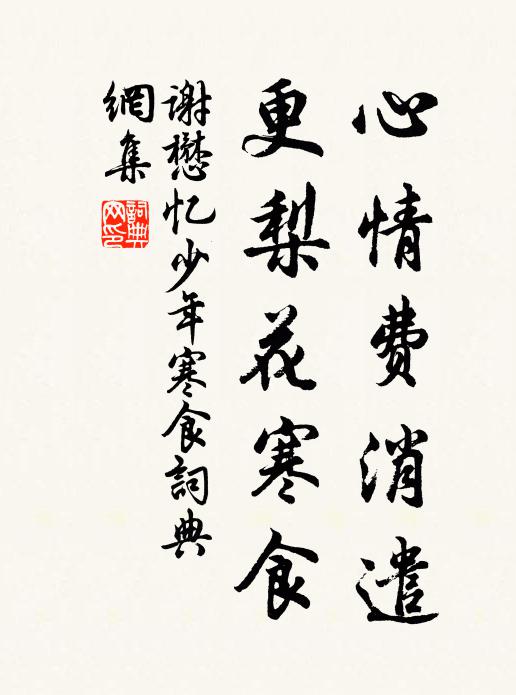 心情費消遣
更梨花寒食
谢懋忆少年寒食詞典
網集
詞典網印